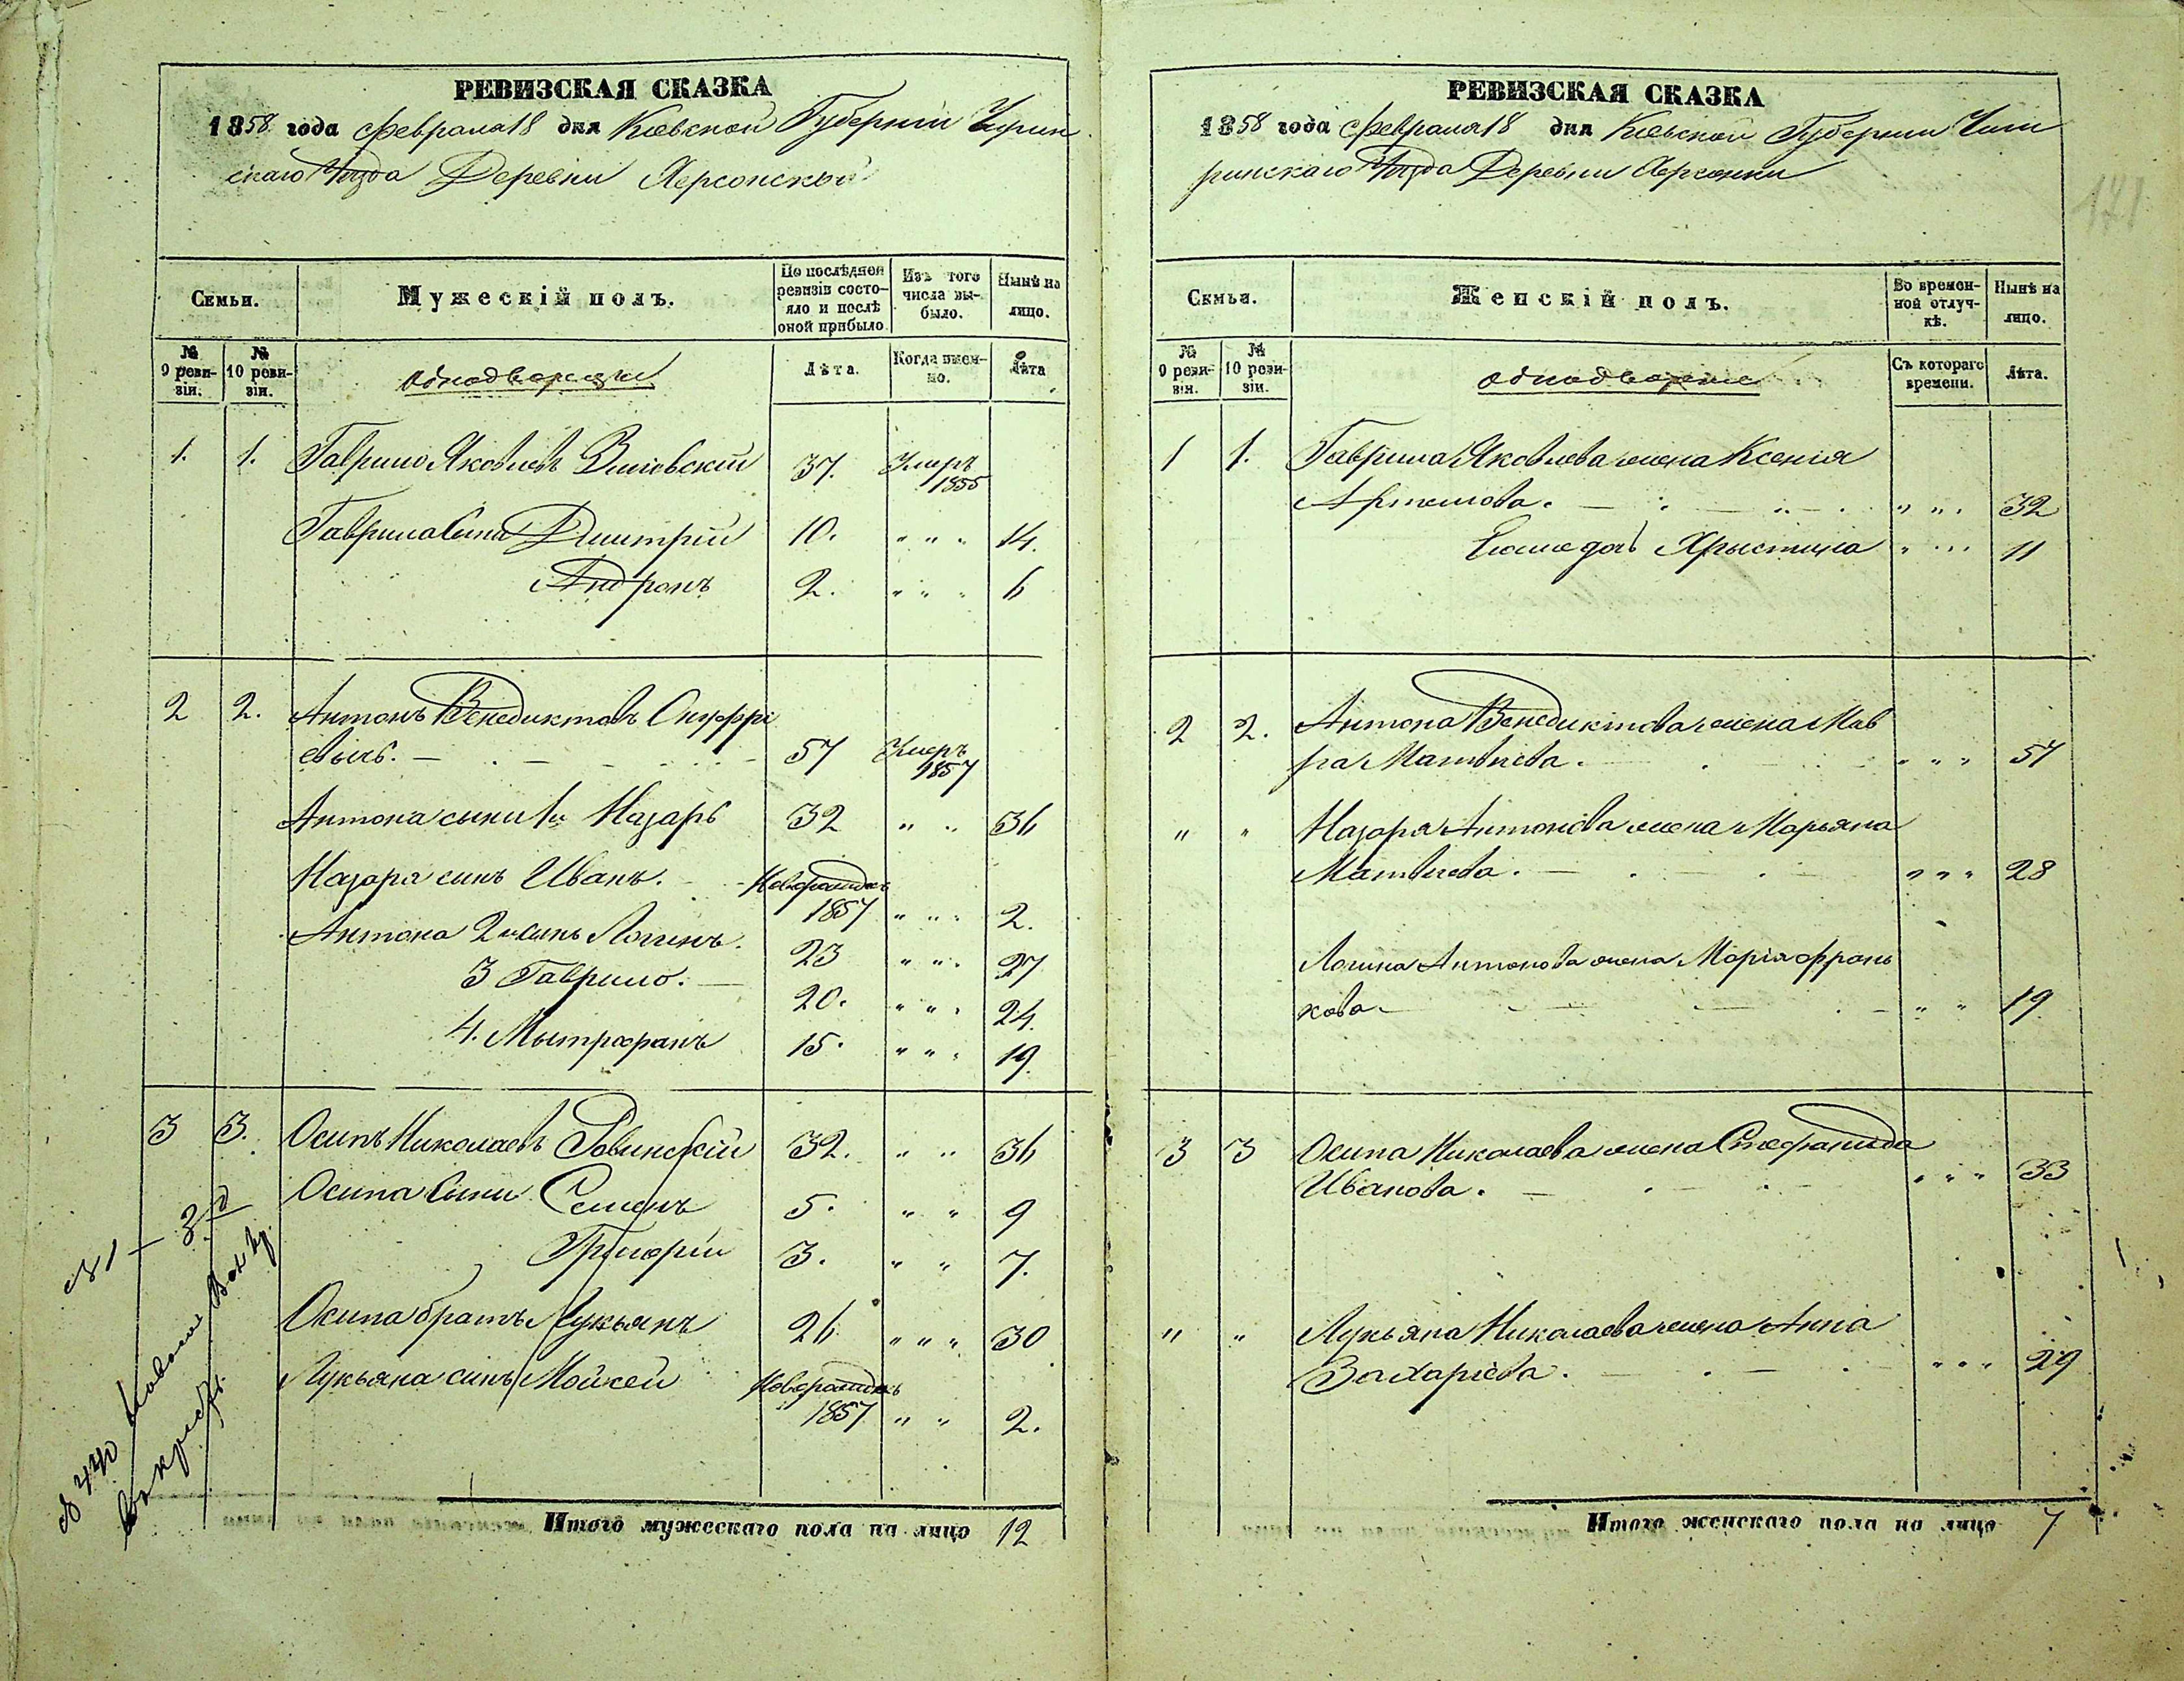 РЕВИЗСКАЯ СКАЗКА
1858 года Февраля 18 дня Киевской Губернии Чигрин
скаго Уезда Деревни Херсонской
Семьи.
Мужескій полъ.
По послѣдней ревизіи состояло и послѣ оной прибыло
Изъ того числа выбыло.
Нынѣ на лицо.
№ 9 ревизіи.
№ 10 ревизіи.
Однодворцы
Лѣта.
Когда именно.
Лѣта
1. 1. Гаврило Яковлевъ 37. Умеръ 1855
Гаврила Сыни Дмитрій 10. " " " 14.
Андронъ 2. " " " 6
2 2. Антонъ Венедиктовъ Онуфрі
евичь. 57 Умеръ 1857
Антона сыни 1й Назарь 32 " " 36
Назаря синъ Иванъ. Новорожденъ 1857 " " " 2.
Антона 2й синъ Логинъ. 23 " " " 27
3 Гаврило. 20. " " " 24.
4. Мытрофанъ 15. " " " 19.
3 3. Осипъ Николаевъ Ровинскій 32. " " 36
Осипа Сыни Семенъ 5. " " 9
Григорій 3. " " 7.
Осипа братъ Лукьянъ 26 " " " 30
Лукьяна синъ Мойсей Новорожденъ 1857 " " 2.
Итого мужескаго пола на лицо 12
РЕВИЗСКАЯ СКАЗКА
1858 года Февраля 18 дня Киевской Губернии Чиги
ринскаго Уезда Деревни Херсонки
171
Семьи.
Женскій полъ.
Во временной отлучкѣ.
Нынѣ на лицо.
№ 9 ревизіи.
№ 10 ревизіи.
Однодворцы
Съ котораго времени.
Лѣта.
1 1. Гаврила Яковлева жена Ксенія
Артемова. " " 32
Его же дочь Хрыстина " " 11
2 2. Антона Венедиктова жена Мав
ра Матвиева. " " " 57
" " Назара Антонова жена Марьяна
Матвиева. " " " 28
Логина Антонова жена Марія Франь
кова " " 19
3 3 Осипа Николаева жена Стефанида
Иванова. " " " 33
" " Лукьяна Николаева жена Анна
Захаріева. " " " 29
Итого женскаго пола на лицо 7